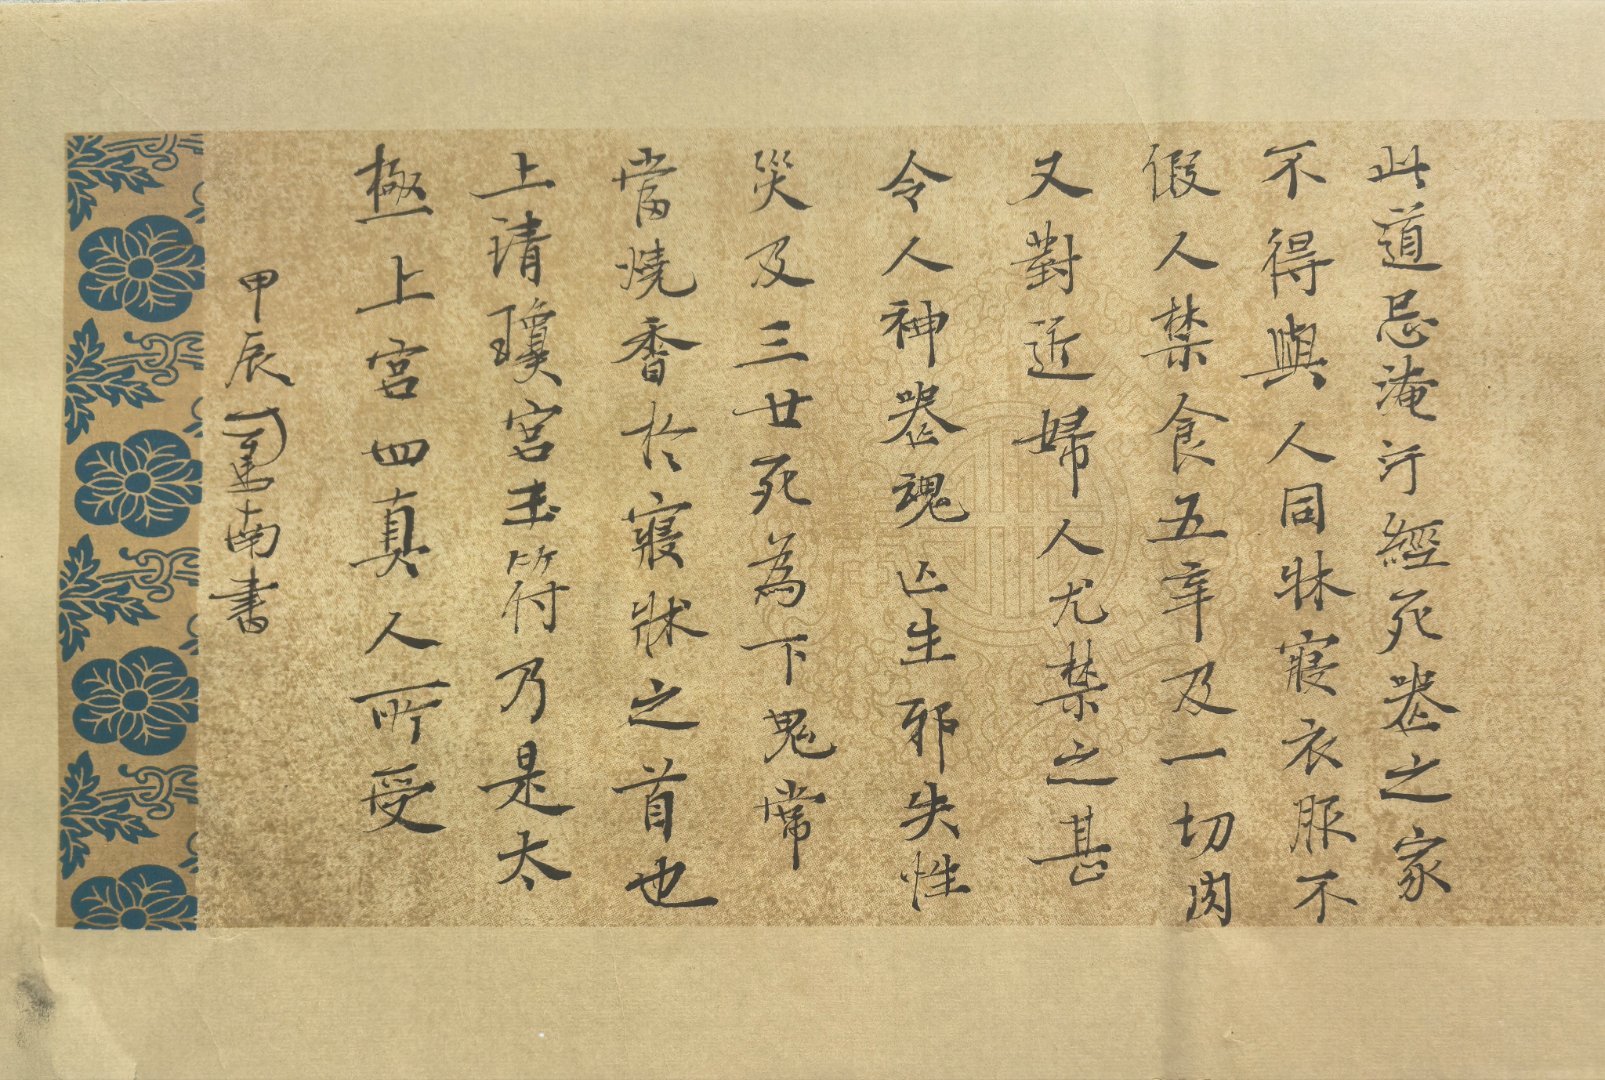 此道忌淹汙經死喪之家
不得與人同牀寢衣服不
假人禁食五辛及一切肉
又對近婦人尤禁之甚
令人神喪魂亡生邪失性
災及三世死為下鬼常
當燒香於寢牀之首也
上清瓊宮玉符乃是太
極上宮四真人所受
甲辰南書